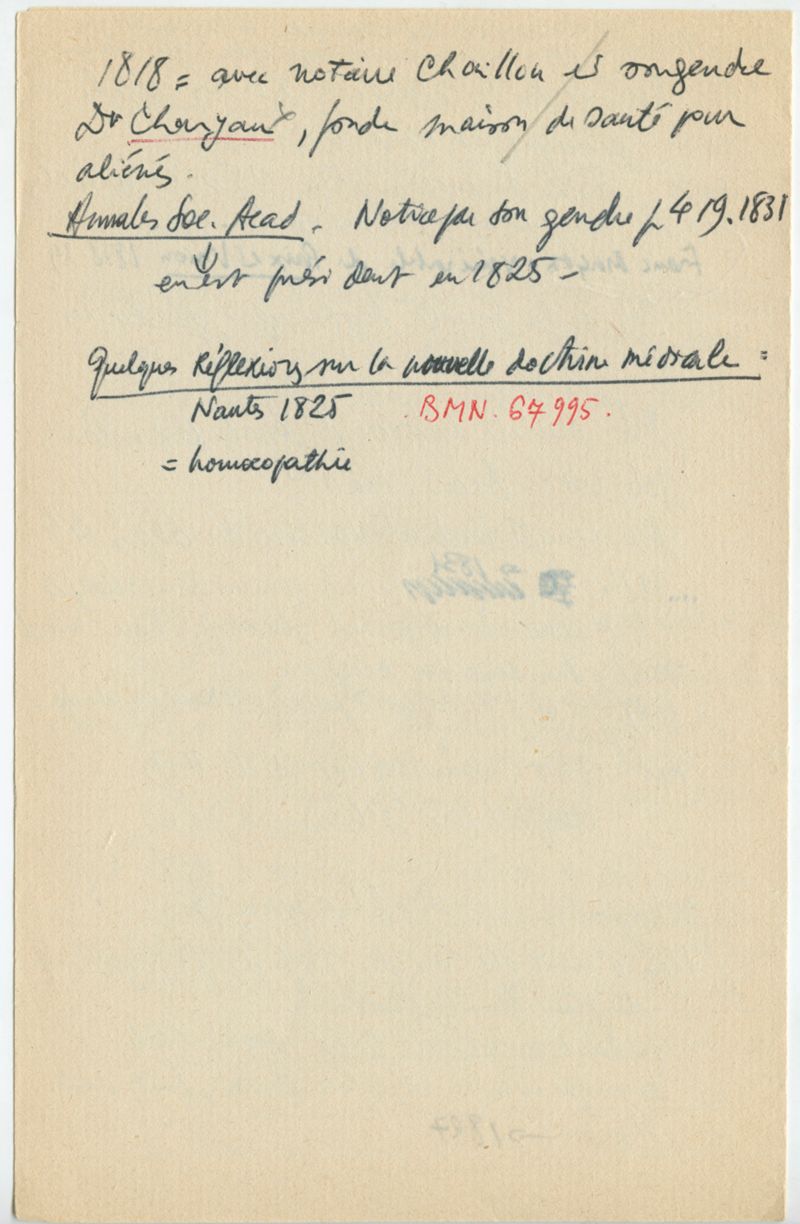 1818 = avec notaire Chaillou et son gendre
Dr, fonde maison de santé pour
aliénés.
Annales Soc. Acad. Notice par son gendre p 419. 1831
en est président en 1825 -
Quelques Réflexions sur la nouvelle doctrine médicale =
Nantes 1825 BMN. 67995.
= homœopathie